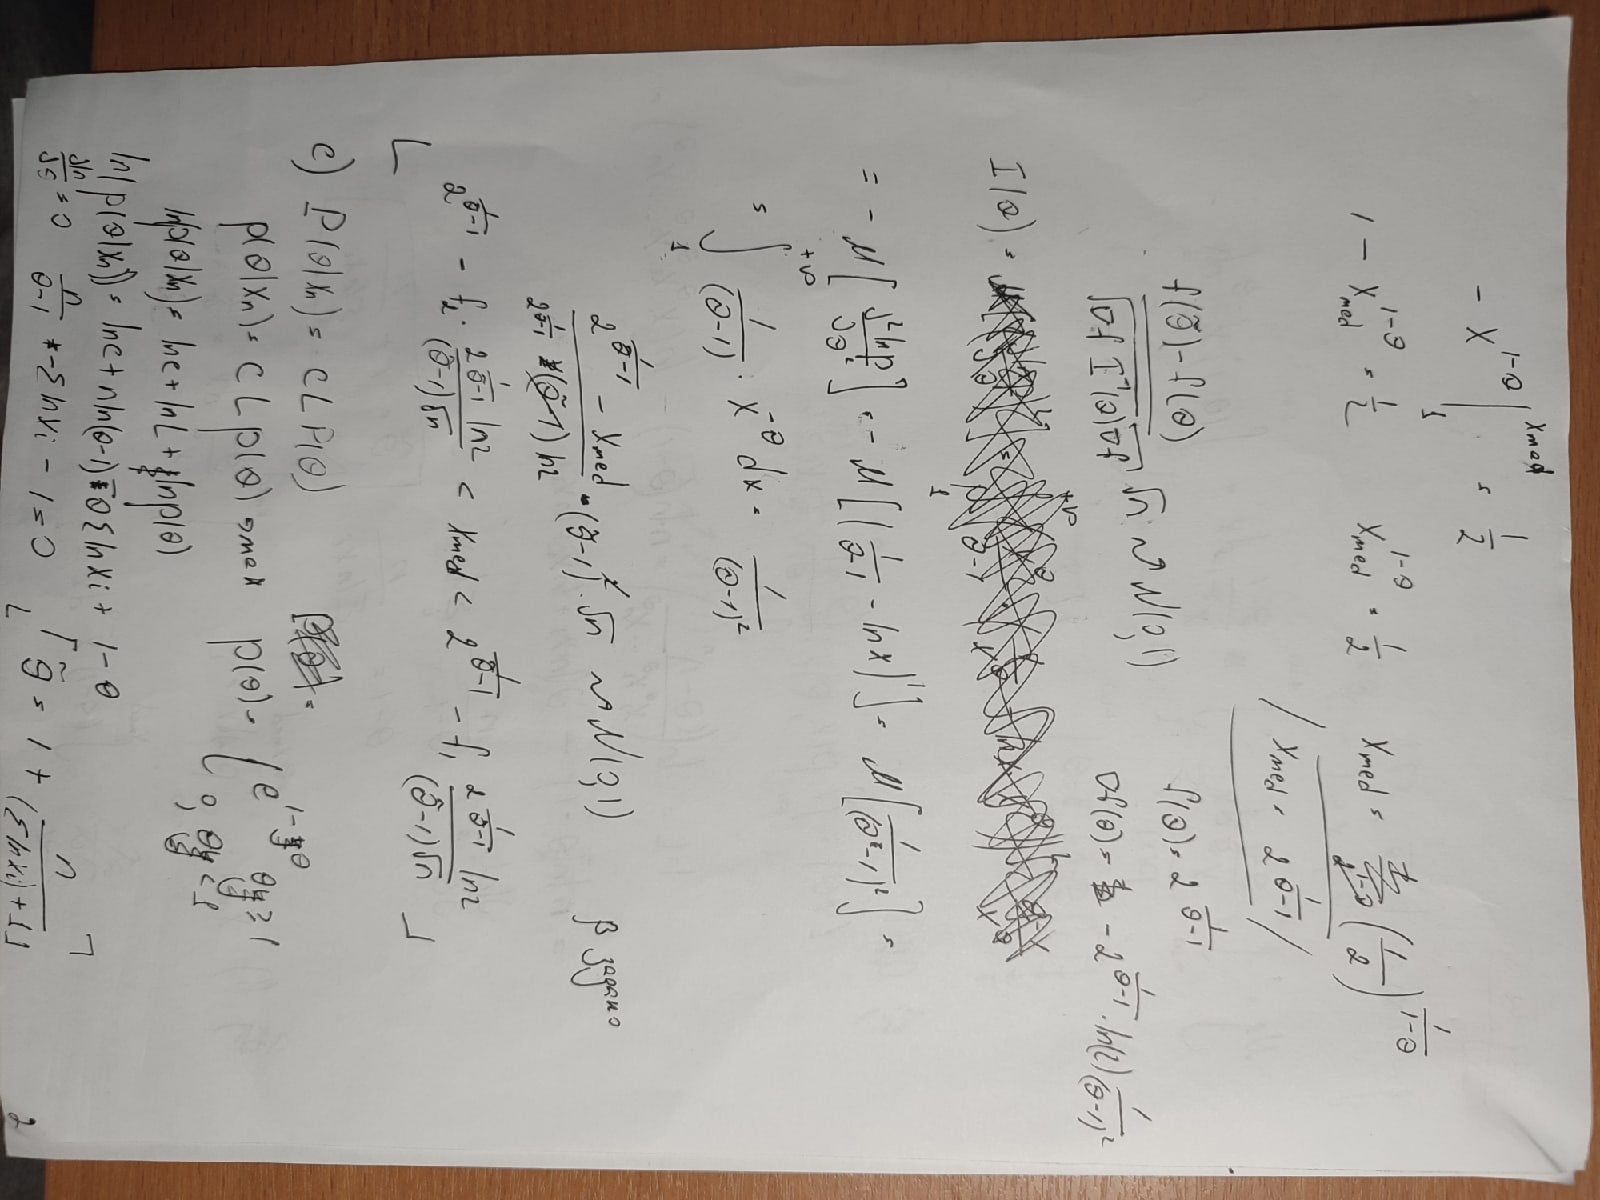 - x^{1-θ} |_1^{x_med} = 1/2
1 - x_med^{1-θ} = 1/2   x_med^{1-θ} = 1/2   x_med = (1/2)^{1/(1-θ)}
/ x_med = 2^{1/(θ-1)} /
(f(θ̃) - f(θ)) / √(∇f I^{-1}(θ) ∇f) √n ⇝ N(0,1)   f(θ) = 2^{1/(θ-1)}
∇f(θ) = - 2^{1/(θ-1)} · ln(2) 1/(θ-1)^2
I(θ) =
= - M[∂² ln p / ∂θ²] = - M[(1/(θ-1) - ln x)'] = M[1/(θ-1)^2] =
= ∫_1^{+∞} 1/(θ-1) · x^{-θ} dx = 1/(θ-1)^2
(2^{1/(θ̃-1)} - x_med) / (2^{1/(θ̃-1)} ln 2) · (θ̃-1) · √n ⇝ N(0,1)   β задано
2^{1/(θ̃-1)} - f_2 · (2^{1/(θ̃-1)} ln2) / ((θ̃-1)√n) < x_med < 2^{1/(θ̃-1)} - f_1 (2^{1/(θ̃-1)} ln2) / ((θ̃-1)√n)
c) P(θ|x_n) = c L P(θ)
p(θ|x_n) = c L p(θ) → max   p(θ) = { e^{1-θ}, θ ≥ 1
0, θ < 1
ln p(θ|x_n) = ln c + ln L + ln p(θ)
ln(p(θ|x_n)) = ln c + n ln(θ-1) - θ Σ ln x_i + 1 - θ
∂ln/∂θ = 0   n/(θ-1) - Σ ln x_i - 1 = 0   θ̃ = 1 + n/((Σ ln x_i) + 1)
2